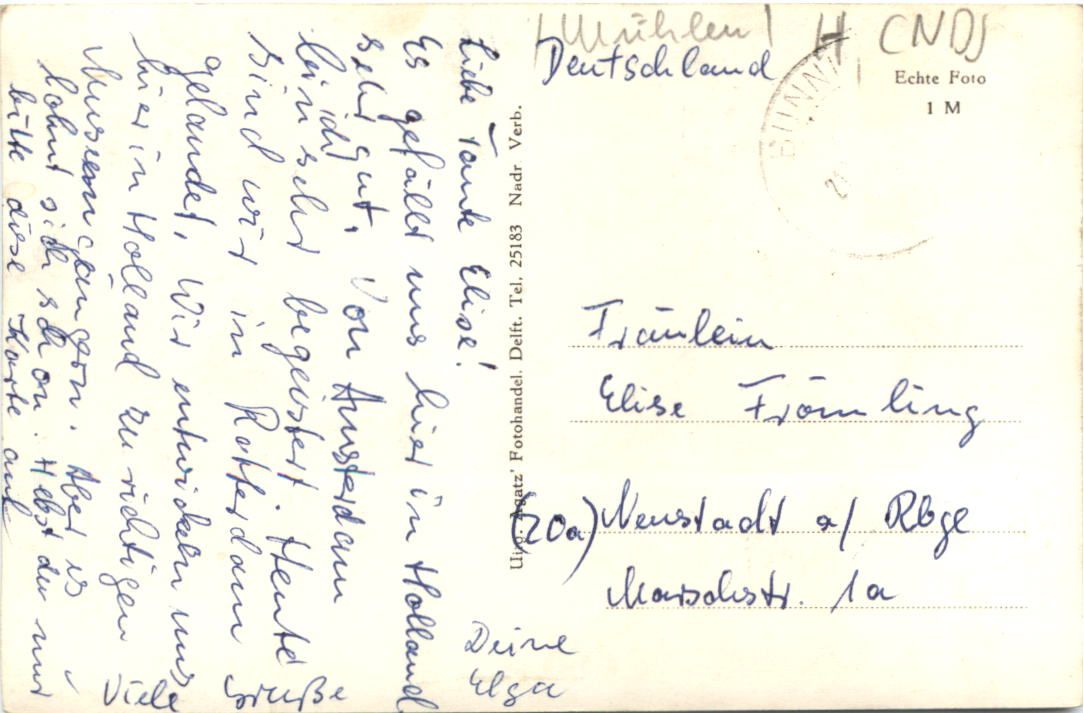 Liebe Tante Elise!
Es gefällt uns hier in Holland
sehr gut. Von Amsterdam
bin ich
sehr begeistert. Heute
sind wir in Rotterdam
gelandet. Wir entwickeln uns
hier in Holland zu richtigen
Museumsgängern. Aber es
lohnt sich schon. Hebst du mir
bitte diese Karte auf
Viele Grüße
Deine
Elga
Uitg. Fotohandel. Delft. Tel. 25183 Nadr Verb.
Mühlen H (NDS
Deutschland
Echte Foto
1 M
Fräulein
Elise Frömling
(20a) Neustadt a/ Rbge
Marschstr. 1a